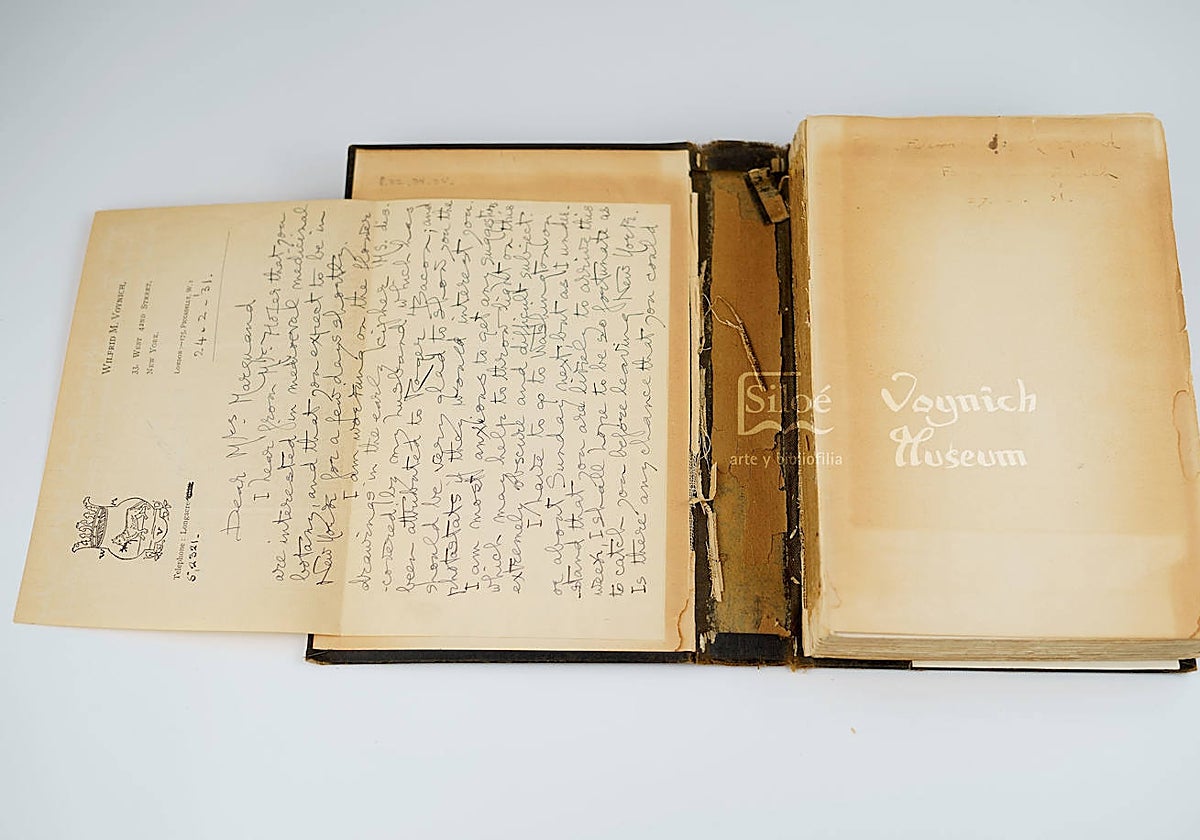 WILFRID M. VOYNICH,
33 WEST 42ND STREET,
NEW YORK.
LONDON—175, PICCADILLY, W. 1
24.2.'31.
Telephone: Longacre
5,2321.
Dear Mrs Marquand
I hear from that you
are interested in mediaeval medicinal
botany, and that you expect to be in
New York for a few days shortly.
I am working on the flower
drawings in the early cipher MS. dis-
-covered by my husband which has
been attributed to Roger Bacon; and
should be very glad to show you the
photostats if they would interest you.
I am most anxious to get any suggestion
which may help to throw light on this
extremely obscure and difficult subject.
I have to go to Washington on
or about Sunday next, but as I under-
-stand that you are likely to arrive this
week, I shall hope to be so fortunate as
to catch you before leaving New York.
Is there any chance that you could
Siloé
arte y bibliofilia
Voynich
Museum